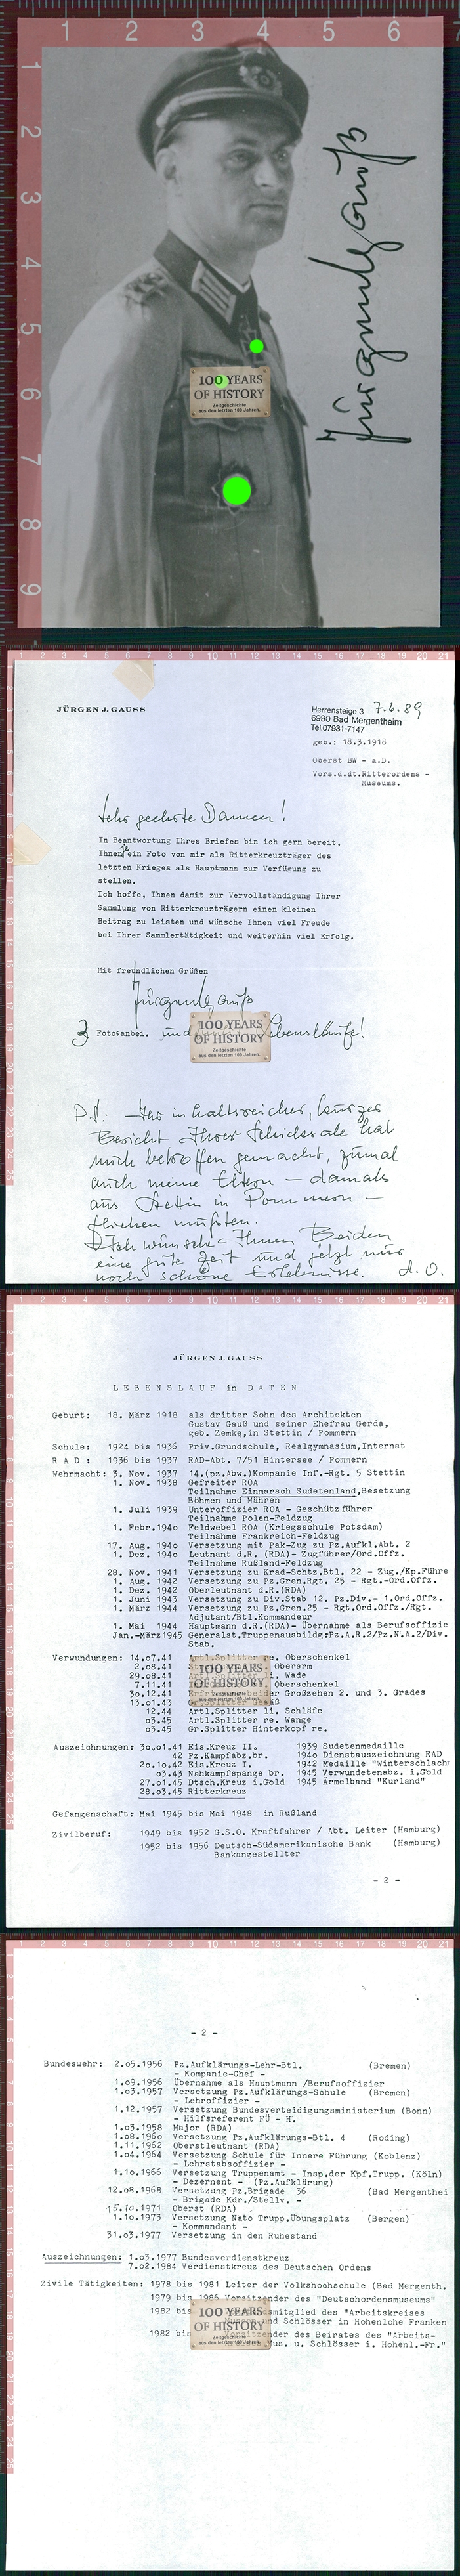 1 2 3 4 5 6 7
1
2
3
4
5
6
7
8
9
Jürgen J. Gauß
100 YEARS
OF HISTORY
Zeitgeschichte
aus den letzten 100 Jahren.
JÜRGEN J. GAUSS
Herrensteige 3 7.6.89
6990 Bad Mergentheim
Tel.07931-7147
geb.: 18.3.1918
Oberst BW - a.D.
Vors.d.dt.Ritterordens -
Museums.
Sehr geehrte Damen!
In Beantwortung Ihres Briefes bin ich gern bereit,
Ihnen je ein Foto von mir als Ritterkreuzträger des
letzten Krieges als Hauptmann zur Verfügung zu
stellen.
Ich hoffe, Ihnen damit zur Vervollständigung Ihrer
Sammlung von Ritterkreuzträgern einen kleinen
Beitrag zu leisten und wünsche Ihnen viel Freude
bei Ihrer Sammlertätigkeit und weiterhin viel Erfolg.
Mit freundlichen Grüßen
Jürgen J. Gauß
3 Fotos anbei. und Lebensläufe!
100 YEARS
OF HISTORY
Zeitgeschichte
aus den letzten 100 Jahren.
P.S. Ihr inhaltsreicher, kurzer
Bericht Ihrer Schicksale hat
mich betroffen gemacht, zumal
auch meine Eltern — damals
aus Stettin in Pommern —
fliehen mußten.
Ich wünsche Ihnen Beiden
eine gute Zeit und jetzt nur
noch schöne Erlebnisse. d. O.
JÜRGEN J. GAUSS
LEBENSLAUF in DATEN
Geburt: 18. März 1918 als dritter Sohn des Architekten
Gustav Gauß und seiner Ehefrau Gerda,
geb. Zemke,in Stettin / Pommern
Schule: 1924 bis 1936 Priv.Grundschule, Realgymnasium,Internat
R A D : 1936 bis 1937 RAD-Abt. 7/51 Hintersee / Pommern
Wehrmacht: 3. Nov. 1937 14.(pz.Abw.)Kompanie Inf.-Rgt. 5 Stettin
1. Nov. 1938 Gefreiter ROA
Teilnahme Einmarsch Sudetenland,Besetzung
Böhmen und Mähren
1. Juli 1939 Unteroffizier ROA - Geschützführer
Teilnahme Polen-Feldzug
1. Febr.194o Feldwebel ROA (Kriegsschule Potsdam)
Teilnahme Frankreich-Feldzug
17. Aug. 194o Versetzung mit Pak-Zug zu Pz.Aufkl.Abt. 2
1. Dez. 194o Leutnant d.R. (RDA)- Zugführer/Ord.Offz.
Teilnahme Rußland-Feldzug
28. Nov. 1941 Versetzung zu Krad-Schtz.Btl. 22 - Zug./Kp.Führe
1. Aug. 1942 Versetzung zu Pz.Gren.Rgt. 25 - Rgt.-Ord.Offz.
1. Dez. 1942 Oberleutnant d.R.(RDA)
1. Juni 1943 Versetzung zu Div.Stab 12. Pz.Div.- 1.Ord.Offz.
1. März 1944 Versetzung zu Pz.Gren.25 - Rgt.Ord.Offz./Rgt.
Adjutant/Btl.Kommandeur
1. Mai 1944 Hauptmann d.R.(RDA)- Übernahme als Berufsoffizie
Jan.-März1945 Generalst.Truppenausbildg:Pz.A.R.2/Pz.N.A.2/Div.
Stab.
Verwundungen: 14.o7.41 Artl.Splitter re. Oberschenkel
2.o8.41 Oberarm
29.o8.41 li. Wade
7.11.41 Oberschenkel
3o.12.41 Großzehen 2. und 3. Grades
13.o1.43
12.44 Artl.Splitter li. Schläfe
o3.45 Artl.Splitter re. Wange
o3.45 Gr.Splitter Hinterkopf re.
100 YEARS
OF HISTORY
Auszeichnungen: 3o.o1.41 Eis.Kreuz II. 1939 Sudetenmedaille
42 Pz.Kampfabz.br. 194o Dienstauszeichnung RAD
2o.1o.42 Eis.Kreuz I. 1942 Medaille "Winterschlacht
o3.43 Nahkampfspange br. 1945 Verwundetenabz. i.Gold
27.o1.45 Dtsch.Kreuz i.Gold 1945 Ärmelband "Kurland"
28.o3.45 Ritterkreuz
Gefangenschaft: Mai 1945 bis Mai 1948 in Rußland
Zivilberuf: 1949 bis 1952 G.S.O. Kraftfahrer / Abt. Leiter (Hamburg)
1952 bis 1956 Deutsch-Südamerikanische Bank (Hamburg)
Bankangestellter
- 2 -
- 2 -
Bundeswehr: 2.o5.1956 Pz.Aufklärungs-Lehr-Btl. (Bremen)
- Kompanie-Chef -
1.o9.1956 Übernahme als Hauptmann /Berufsoffizier
1.o3.1957 Versetzung Pz.Aufklärungs-Schule (Bremen)
- Lehroffizier -
1.12.1957 Versetzung Bundesverteidigungsministerium (Bonn)
- Hilfsreferent FÜ - H.
1.o3.1958 Major (RDA)
1.o8.196o Versetzung Pz.Aufklärungs-Btl. 4 (Roding)
1.11.1962 Oberstleutnant (RDA)
1.o4.1964 Versetzung Schule für Innere Führung (Koblenz)
- Lehrstabsoffizier -
1.1o.1966 Versetzung Truppenamt - Insp.der Kpf.Trupp. (Köln)
- Dezernent - (Pz.Aufklärung)
12.o8.1968 Versetzung Pz.Brigade 36 (Bad Mergenthei
- Brigade Kdr./Stellv. -
15.1o.1971 Oberst (RDA)
1.1o.1973 Versetzung Nato Trupp.Übungsplatz (Bergen)
- Kommandant -
31.o3.1977 Versetzung in den Ruhestand
Auszeichnungen: 1.o3.1977 Bundesverdienstkreuz
7.o2.1984 Verdienstkreuz des Deutschen Ordens
Zivile Tätigkeiten: 1978 bis 1981 Leiter der Volkshochschule (Bad Mergenth.
1979 bis 1986 Vorsitzender des "Deutschordensmuseums"
1982 bis smitglied des "Arbeitskreises
und Schlösser in Hohenlohe Franken
1982 bis Vorsitzender des Beirates des "Arbeits-
Mus. u. Schlösser i. Hohenl.-Fr."
100 YEARS
OF HISTORY
Zeitgeschichte
aus den letzten 100 Jahren.